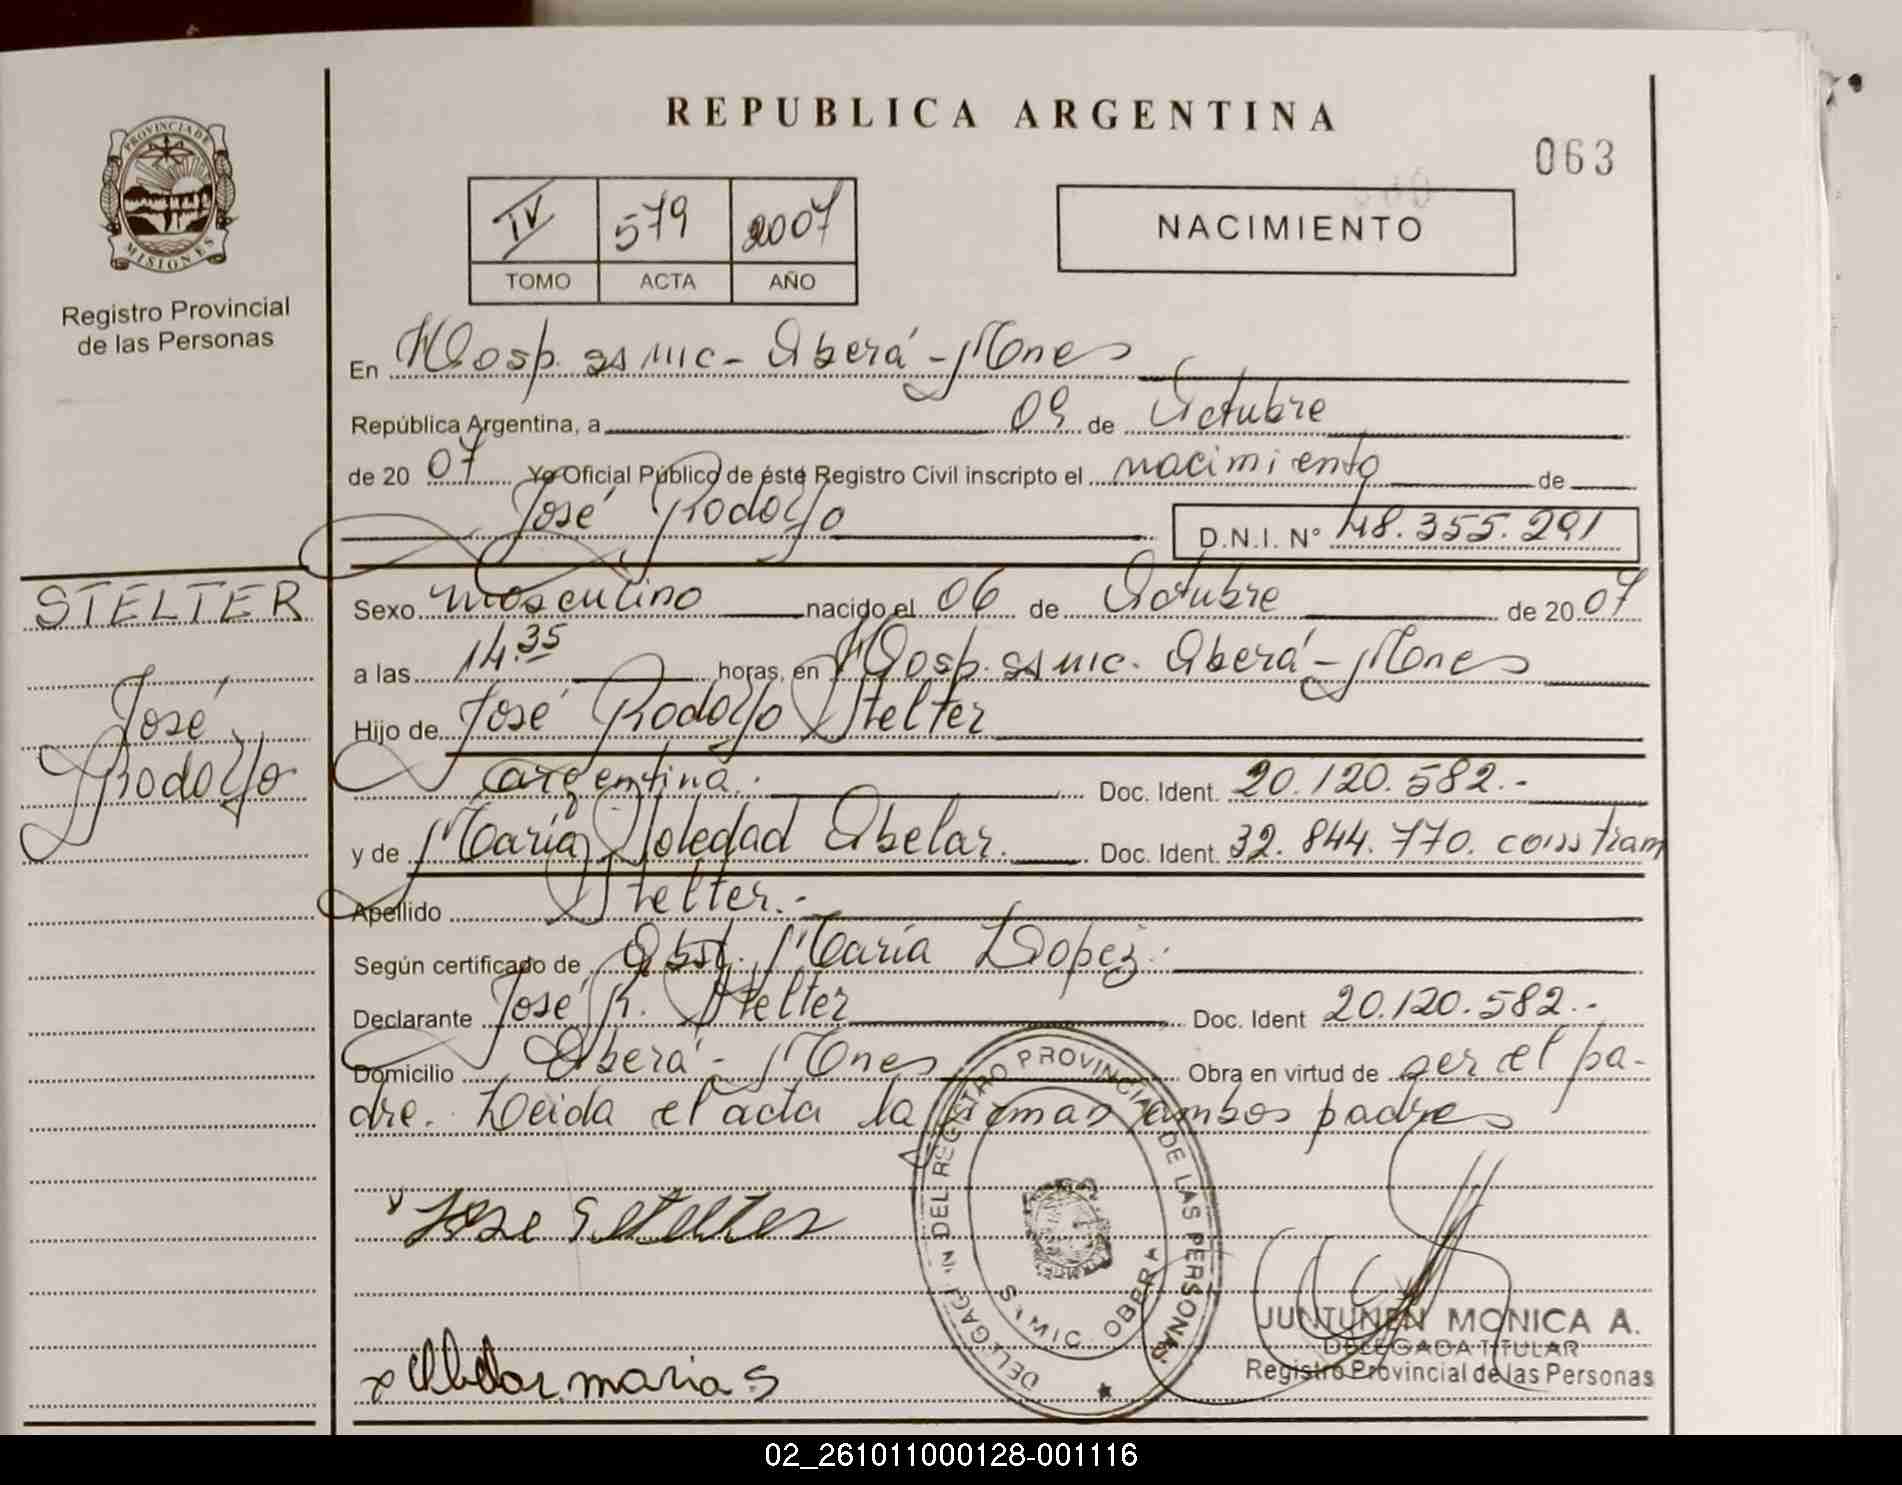 REPUBLICA ARGENTINA
063
PROVINCIA DE
MISIONES
Registro Provincial
de las Personas
IV 579 2007
TOMO ACTA AÑO
NACIMIENTO
En Hosp. Samic - Oberá - Mnes
República Argentina, a 09 de Octubre
de 2007 Yo Oficial Público de éste Registro Civil inscripto el nacimiento de
José Rodolfo D.N.I. N° 48.355.291
STELTER
José
Rodolfo
Sexo masculino nacido el 06 de Octubre de 2007
a las 14.35 horas, en Hosp. Samic. Oberá - Mnes
Hijo de José Rodolfo Stelter
argentina. Doc. Ident. 20.120.582.-
y de María Soledad Abelar. Doc. Ident. 32.844.770.
Apellido Stelter.-
Según certificado de Obst. María Lopez.
Declarante José R. Stelter Doc. Ident 20.120.582.-
Domicilio Oberá - Mnes Obra en virtud de ser el pa-
dre. Leida el acta la firman ambos padres
Jose Stelter
x Abelar maria S
DEL REGISTRO PROVINCIAL DE LAS PERSONAS
SAMIC. OBERA
JUNTUNEN MONICA A.
DELEGADA TITULAR
Registro Provincial de las Personas
02_261011000128-001116